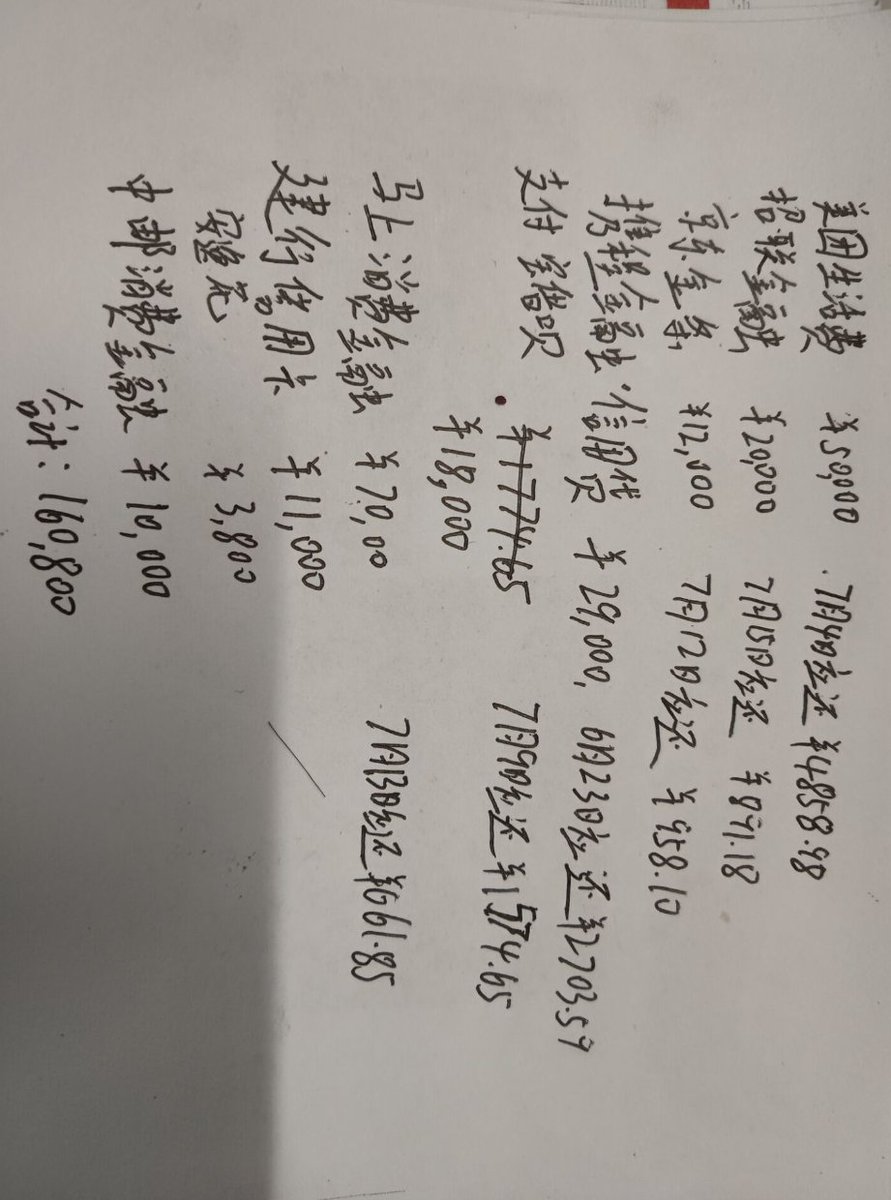 美团生活费 ¥50,000 . 7月9日应还 ¥4858.98
招联金融 ¥20,000 7月15日应还 ¥871.18
京东金条 ¥12,000 7月12日应还 ¥958.10
金融·信用贷 ¥29,000, 6月23日应还 ¥2703.59
支付宝借呗 ¥1774.65 7月9日应还 ¥1574.65
¥18,000
马上消费金融 ¥70,00 7月13日应还 ¥661.85
建行信用卡 ¥11,000
¥3,800
中邮消费金融 ¥10,000
合计: 160,800